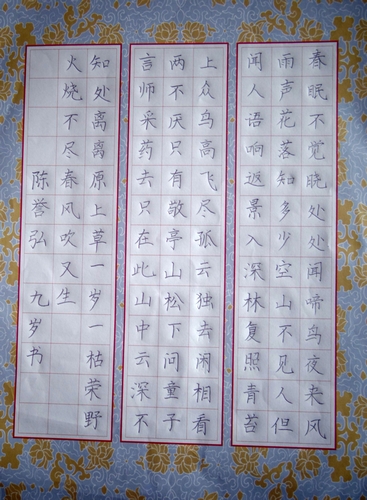 春眠不觉晓处处闻啼鸟夜来风
雨声花落知多少空山不见人但
闻人语响返景入深林复照青苔
上众鸟高飞尽孤云独去闲相看
两不厌只有敬亭山松下问童子
言师采药去只在此山中云深不
知处离离原上草一岁一枯荣野
火烧不尽春风吹又生
陈誉弘 九岁书